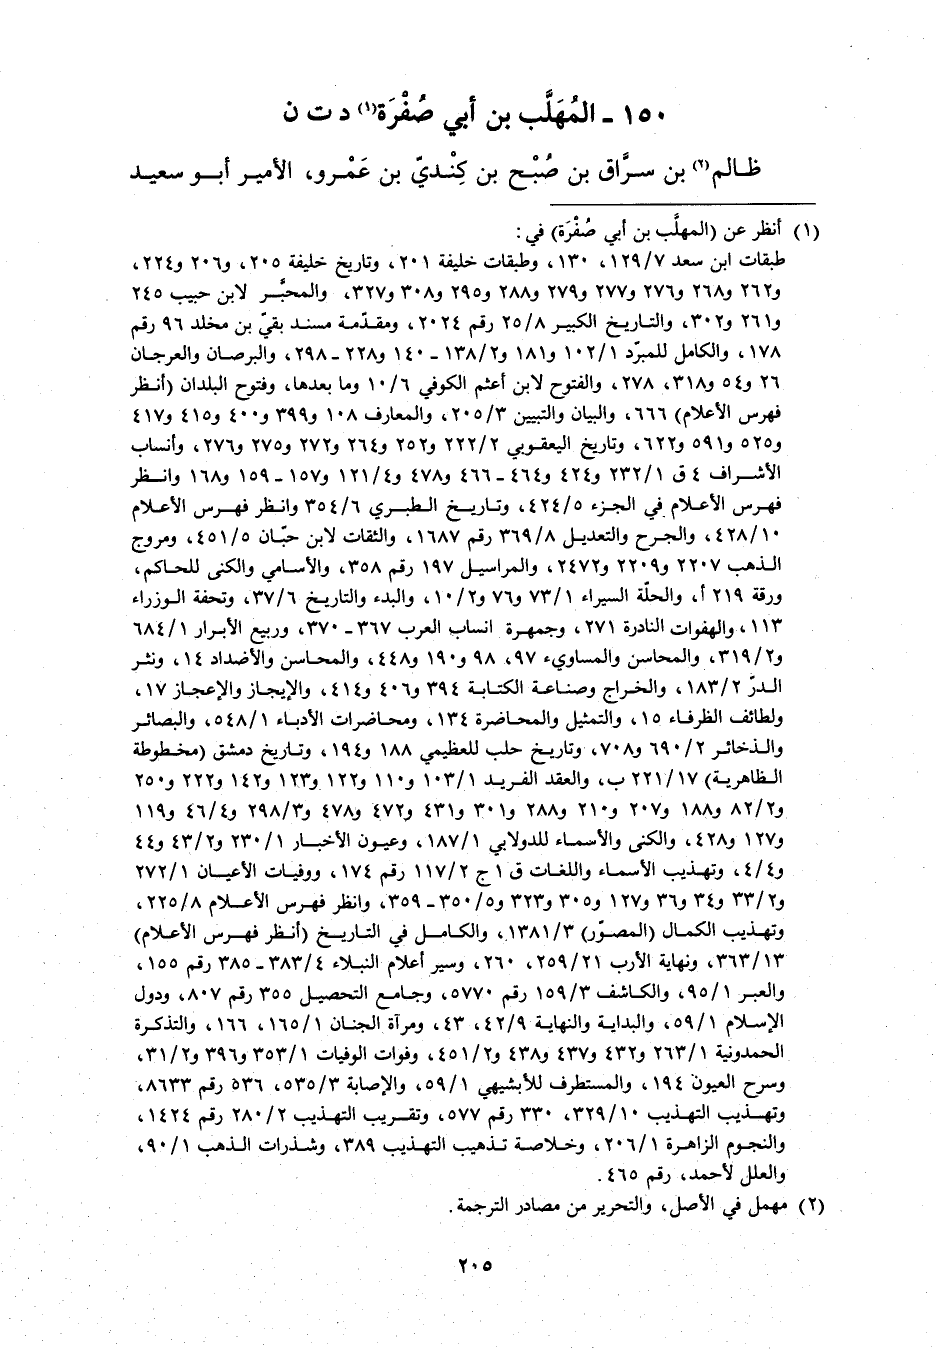 ١٥٠ ـ المُهَلَّب بن أبي صُفْرَة(١) د ت ن
ظالم(٢) بن سرَّاق بن صُبْح بن كِنْديّ بن عَمْرو، الأمير أبو سعيد
(١) أنظر عن (المهلَّب بن أبي صُفْرَة) في:
طبقات ابن سعد ١٢٩/٧، ١٣٠، وطبقات خليفة ٢٠١، وتاريخ خليفة ٢٠٥، و٢٠٦ و٢٢٤،
و٢٦٢ و٢٦٨ و٢٧٦ و٢٧٧ و٢٧٩ و٢٨٨ و٢٩٥ و٣٠٨ و٣٢٧، والمحبَّر لابن حبيب ٢٤٥
و٢٦١ و٣٠٢، والتاريخ الكبير ٢٥/٨ رقم ٢٠٢٤، ومقدّمة مسند بقيّ بن مخلد ٩٦ رقم
١٧٨، والكامل للمبرّد ١٠٢/١ و١٨١ و١٣٨/٢ ـ ١٤٠ و٢٢٨ ـ ٢٩٨، والبرصان والعرجان
٢٦ و٥٤ و٣١٨، ٢٧٨، والفتوح لابن أعثم الكوفي ١٠/٦ وما بعدها، وفتوح البلدان (أنظر
فهرس الأعلام) ٦٦٦، والبيان والتبيين ٢٠٥/٣، والمعارف ١٠٨ و٣٩٩ و٤٠٠ و٤١٥ و٤١٧
و٥٢٥ و٥٩١ و٦٢٢، وتاريخ اليعقوبي ٢٢٢/٢ و٢٥٢ و٢٦٤ و٢٧٢ و٢٧٥ و٢٧٦، وأنساب
الأشراف ٤ ق ٢٣٢/١ و٤٢٤ و٤٦٤ ـ ٤٦٦ و٤٧٨ و١٢١/٤ و١٥٧ ـ ١٥٩ و١٦٨ وانظر
فهرس الأعلام في الجزء ٤٢٤/٥، وتاريخ الطبري ٣٥٤/٦ وانظر فهرس الأعلام
٤٢٨/١٠، والجرح والتعديل ٣٦٩/٨ رقم ١٦٨٧، والثقات لابن حبّان ٤٥١/٥، ومروج
الذهب ٢٢٠٧ و٢٢٠٩ و٢٤٧٢، والمراسيل ١٩٧ رقم ٣٥٨، والأسامي والكنى للحاكم،
ورقة ٢١٩ أ، والحلّة السيراء ٧٣/١ و٧٦ و١٠/٢، والبدء والتاريخ ٣٧/٦، وتحفة الوزراء
١١٣، والهفوات النادرة ٢٧١، وجمهرة انساب العرب ٣٦٧ ـ ٣٧٠، وربيع الأبرار ٦٨٤/١
و٣١٩/٢، والمحاسن والمساويء ٩٧، ٩٨ و١٩٠ و٤٤٨، والمحاسن والأضداد ١٤، ونثر
الدرّ ١٨٣/٢، والخراج وصناعة الكتابة ٣٩٤ و٤٠٦ و٤١٤، والإيجاز والإعجاز ١٧،
ولطائف الظرفاء ١٥، والتمثيل والمحاضرة ١٣٤، ومحاضرات الأدباء ٥٤٨/١، والبصائر
والذخائر ٦٩٠/٢ و٧٠٨، وتاريخ حلب للعظيمي ١٨٨ و١٩٤، وتاريخ دمشق (مخطوطة
الظاهرية) ٢٢١/١٧ ب، والعقد الفريد ١٠٣/١ و١١٠ و١٢٢ و١٢٣ و١٤٢ و٢٢٢ و٢٥٠
و٨٢/٢ و١٨٨ و٢٠٧ و٢١٠ و٢٨٨ و٣٠١ و٤٣١ و٤٧٢ و٤٧٨ و٢٩٨/٣ و٤٦/٤ و١١٩
و١٢٧ و٤٢٨، والكنى والأسماء للدولابي ١٨٧/١، وعيون الأخبار ٢٣٠/١ و٤٣/٢ و٤٤
و٤/٤، وتهذيب الأسماء واللغات ق ١ ج ١١٧/٢ رقم ١٧٤، ووفيات الأعيان ٢٧٢/١
و٣٣/٢ و٣٤ و٣٦ و١٢٧ و٣٠٥ و٣٢٣ و٣٥٠/٥ ـ ٣٥٩، وانظر فهرس الأعلام ٢٢٥/٨،
وتهذيب الكمال (المصوّر) ١٣٨١/٣، والكامل في التاريخ (أنظر فهرس الأعلام)
٣٦٣/١٣، ونهاية الأرب ٢٥٩/٢١، ٢٦٠، وسير أعلام النبلاء ٣٨٣/٤ ـ ٣٨٥ رقم ١٥٥،
والعبر ٩٥/١، والكاشف ١٥٩/٣ رقم ٥٧٧٠، وجامع التحصيل ٣٥٥ رقم ٨٠٧، ودول
الإسلام ٥٩/١، والبداية والنهاية ٤٢/٩، ٤٣، ومرآة الجنان ١٦٥/١، ١٦٦، والتذكرة
الحمدونية ٢٦٣/١ و٤٣٢ و٤٣٧ و٤٣٨ و٤٥١/٢، وفوات الوفيات ٣٥٣/١ و٣٩٦ و٣١/٢،
وسرح العيون ١٩٤، والمستطرف للأبشيهي ٥٩/١، والإصابة ٥٣٥/٣، ٥٣٦ رقم ٨٦٣٣،
وتهذيب التهذيب ٣٢٩/١٠، ٣٣٠ رقم ٥٧٧، وتقريب التهذيب ٢٨٠/٢ رقم ١٤٢٤،
والنجوم الزاهرة ٢٠٦/١، وخلاصة تذهيب التهذيب ٣٨٩، وشذرات الذهب ٩٠/١،
والعلل لأحمد، رقم ٤٦٥.
(٢) مهمل في الأصل، والتحرير من مصادر الترجمة.
٢٠٥